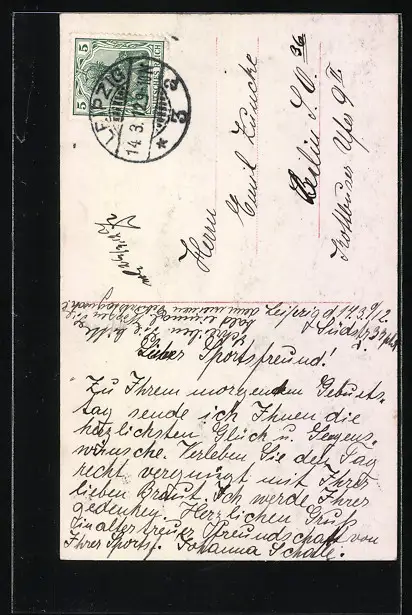 5
5
LEIPZIG
14.3.12
* 3 a
Herrn
Emil
Berlin S.O. 36
Kottbuser Ufer 9 II
Leipzig d 14.3.912
Südstr. 33
Lieber Sportsfreund!
Zu Ihrem morgenden Geburts-
tag sende ich Ihnen die
herzlichsten Glück u. Segens-
wünsche. Verleben Sie den Tag
recht vergnügt mit Ihrer
lieben Braut. Ich werde Ihrer
gedenken. Herzlichen Gruß
In alter treuer Freundschaft von
Ihrer Sportsf. Johanna